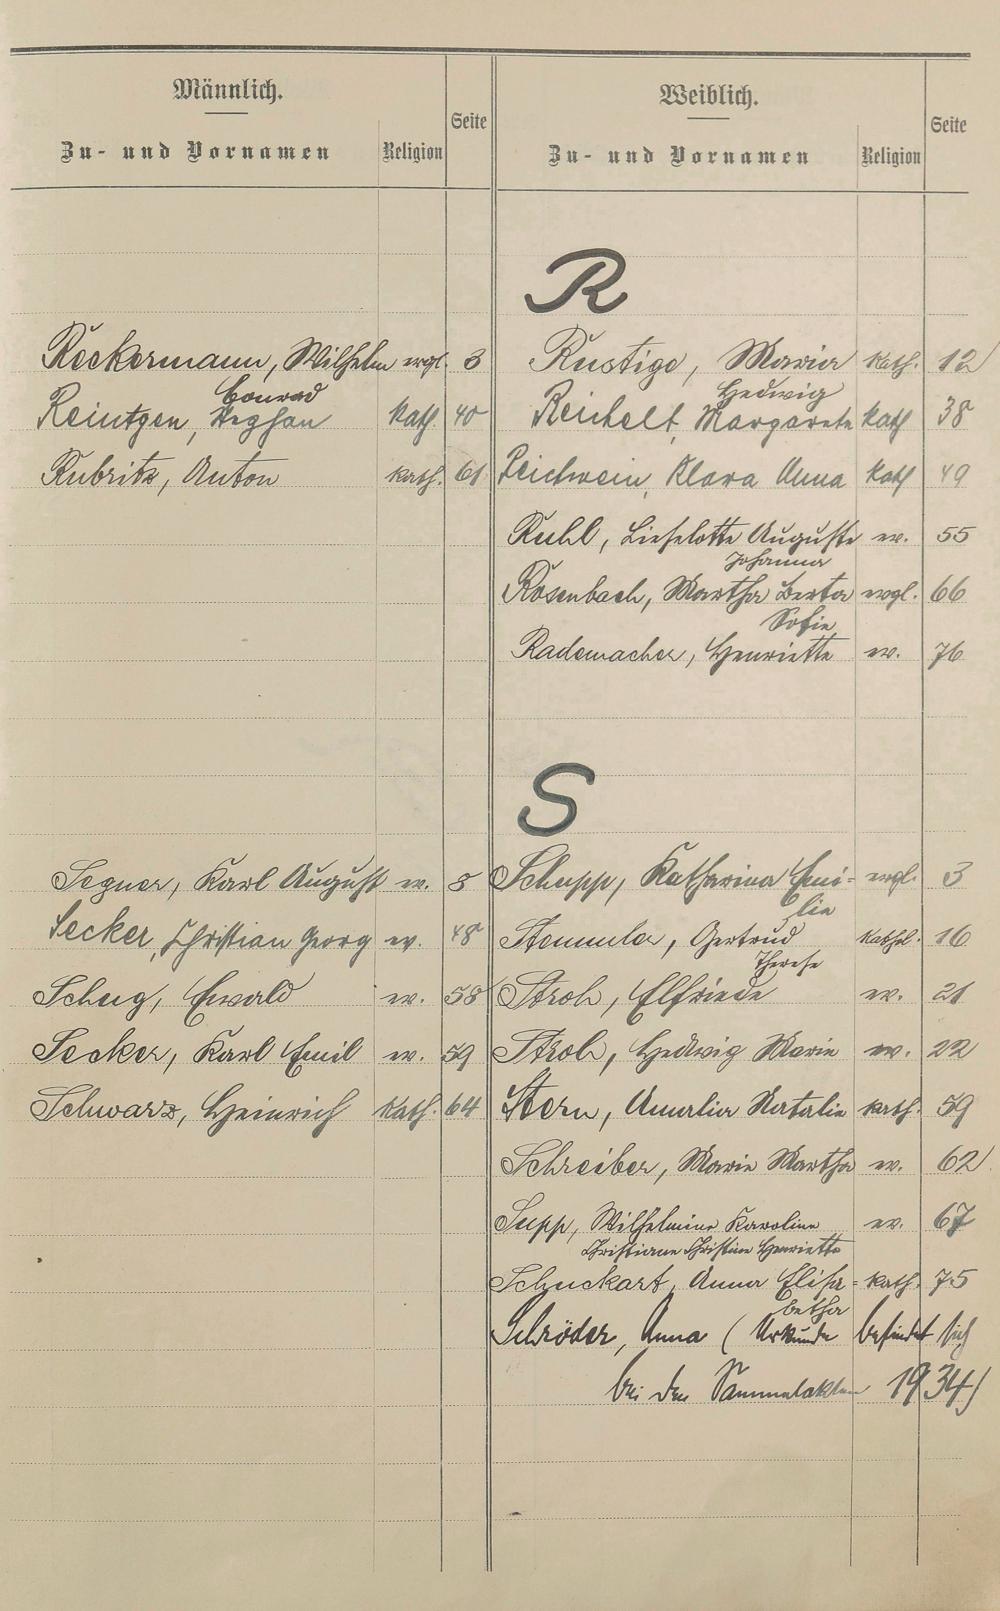 Männlich.
Zu- und Vornamen
Religion
Seite
Weiblich.
Zu- und Vornamen
Religion
Seite
R
Reckermann, Wilhelm evgl. 3
Conrad
Reintgen, Stephan kath. 40
Kubritz, Anton kath. 61
Rustige, Maria kath. 12
Hedwig
Reichelt, Margarete kath 38
Reichwein, Klara Anna kath 49
Ruhl, Lieselotte Auguste ev. 55
Johanna
Rosenbach, Martha Berta evgl. 66
Sofie
Rademacher, Henriette ev. 76
S
Segner, Karl August ev. 8
Secker, Christian Georg ev. 48
Schug, Ewald ev. 58
Secker, Karl Emil ev. 59
Schwarz, Heinrich kath. 64
Schupp, Katharina Emi- evgl. 3
lie
Stemmler, Gertrud kathol. 16
Therese
Stroh, Elfriede ev. 21
Stroh, Hedwig Marie ev. 22
Stern, Amalia Natalie kath. 59
Schreiber, Marie Martha ev. 62
Supp, Wilhelmine Karoline ev. 67
Christiane Christine Henriette
Schuckart, Anna Elisa- kath. 75
betha
Schröder, Anna (Urkunde befindet sich
bei den Sammelakten 1934)